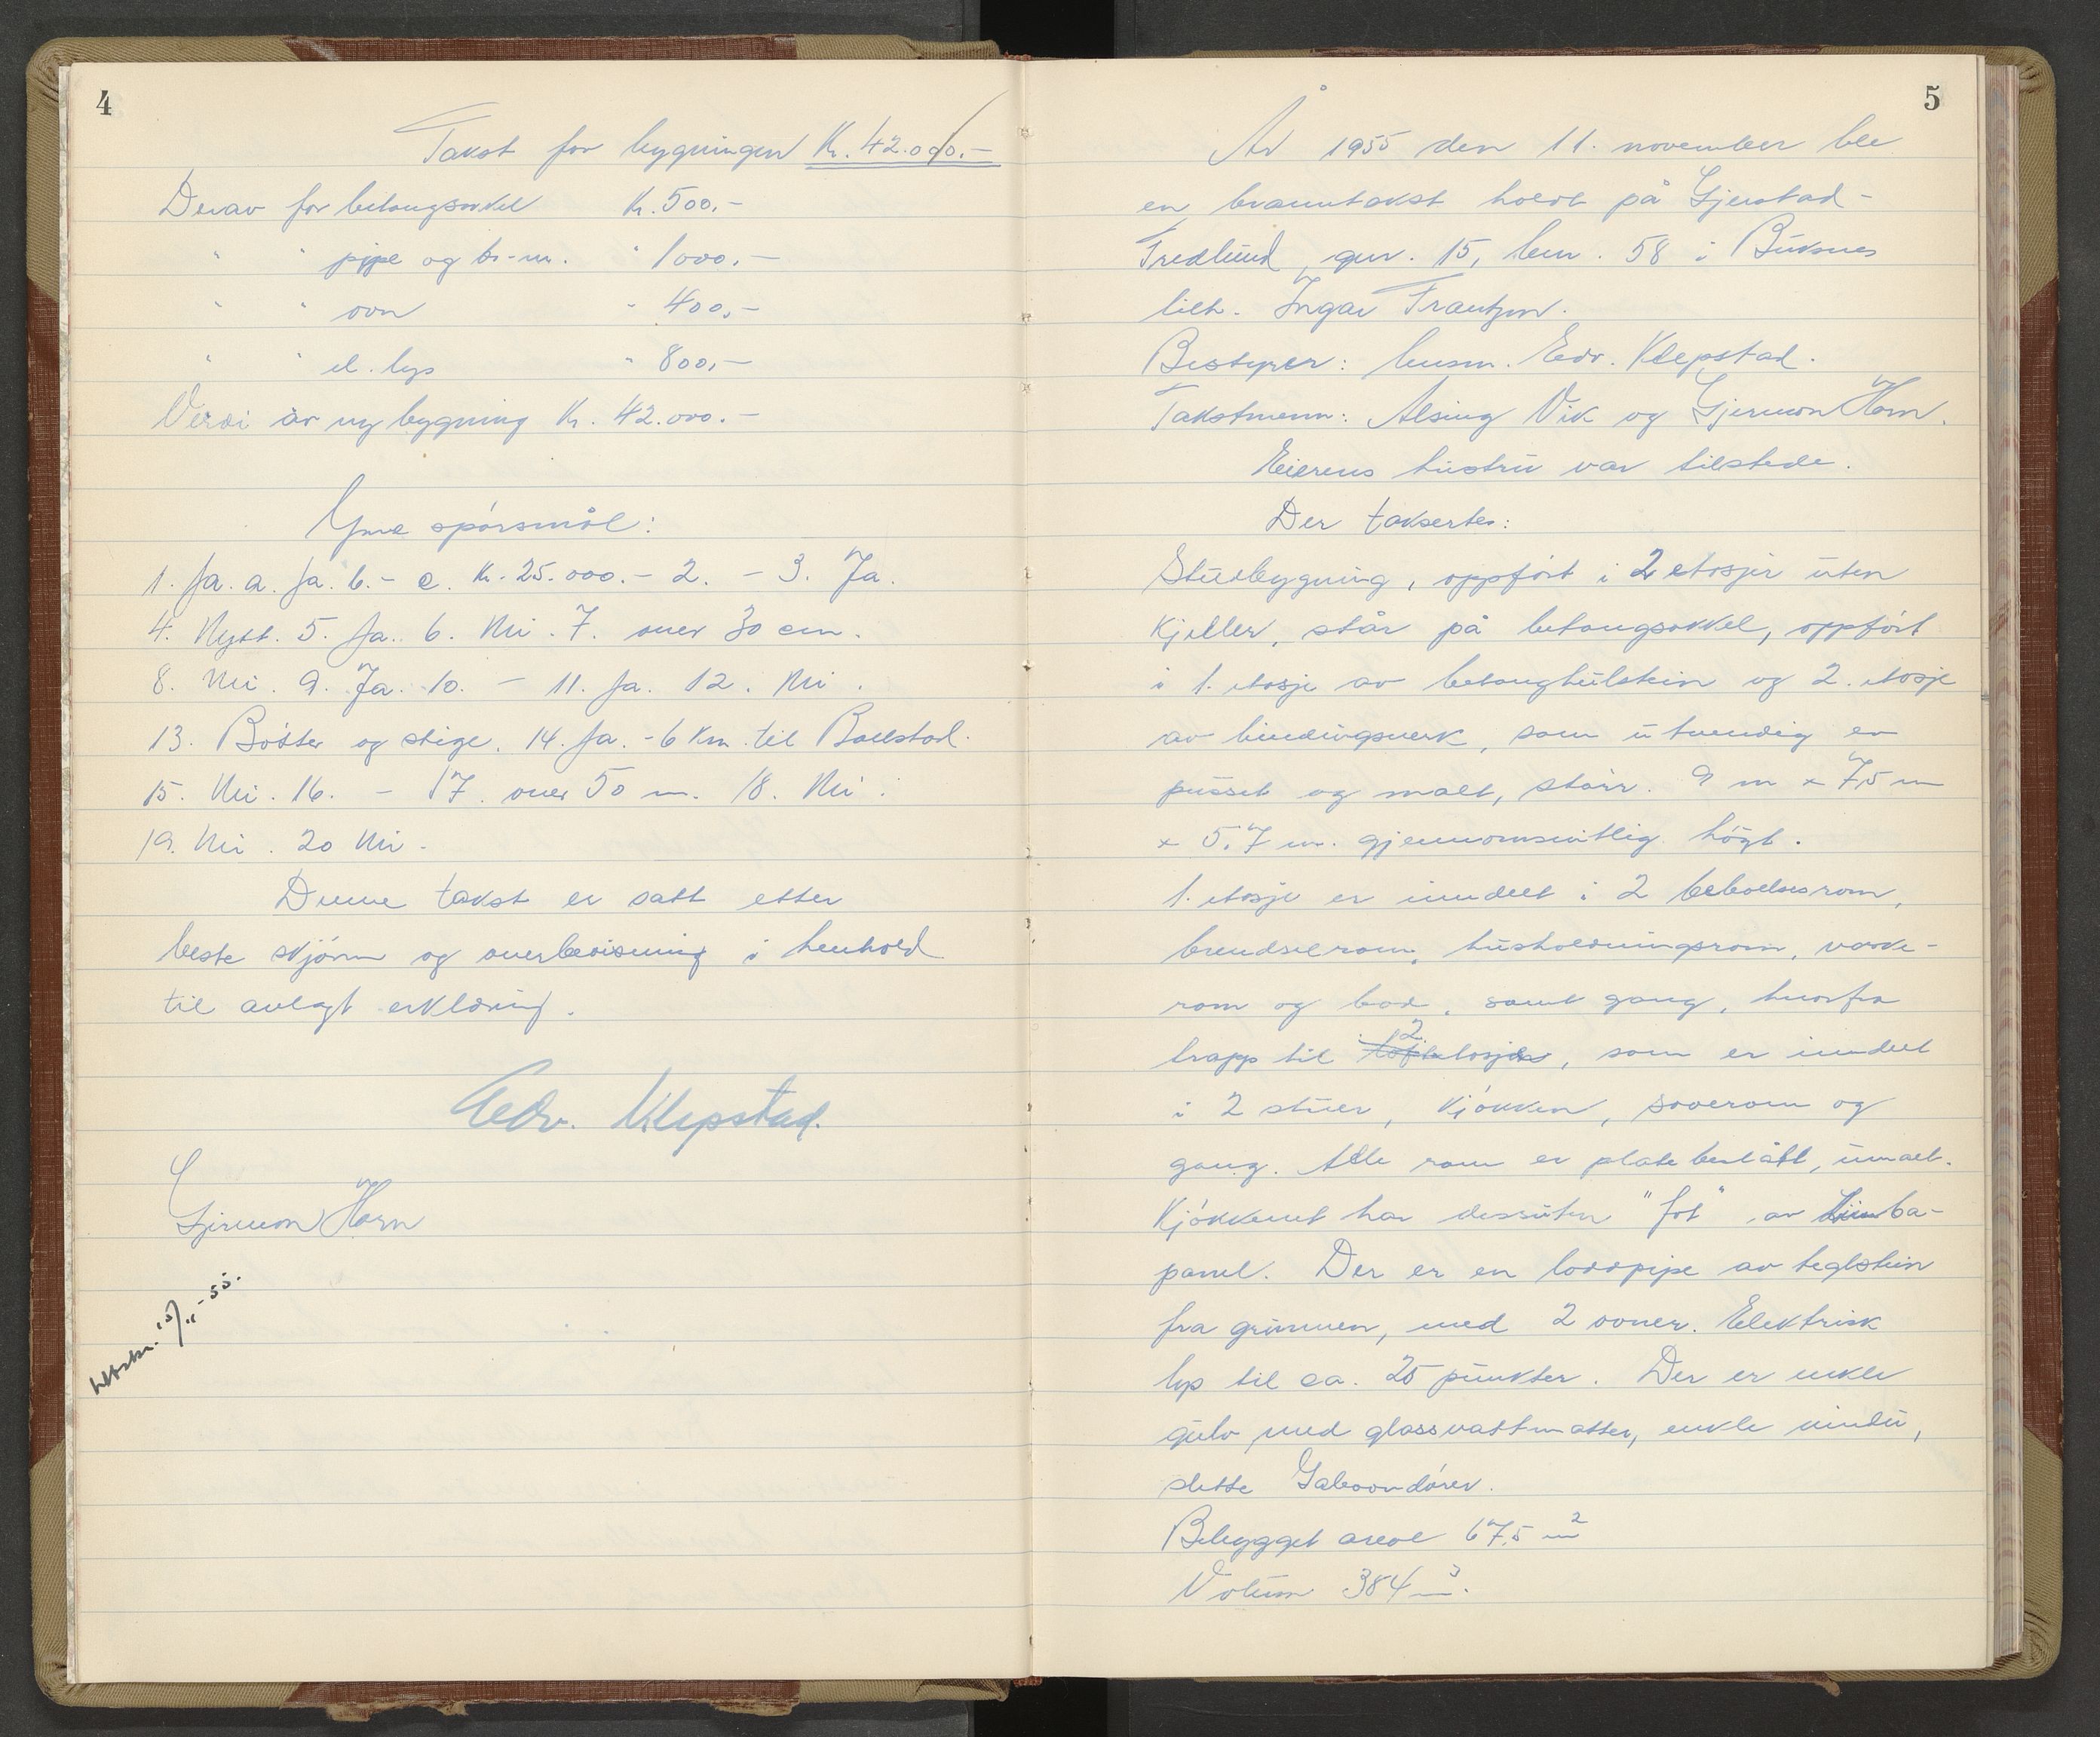 4
Takst for bygningen Kr. 42.000.-
Derav for betongsokkel Kr. 500.-
" " pipe og br-m. " 1000.-
" " ovn " 400.-
" " el. lys " 800.-
Verdi av ny bygning Kr. 42.000.-
Ymse spørsmål:
1. Ja. a. Ja. b. - c. Kr. 25.000.- 2. - 3. Ja.
4. Nytt. 5. Ja. 6. Nei. 7. over 30 cm.
8. Nei. 9. Ja. 10. - 11. Ja. 12. Nei.
13. Bøtter og stige. 14. Ja. - 6 km. til Ballstad.
15. Nei. 16. - 17. over 50 m. 18. Nei.
19. Nei. 20 Nei.
Denne takst er satt etter
beste skjønn og overbevisning i henhold
til avlagt erklæring.
Edv. Klepstad.
Gjermon Horn
15/11-55.
5
År 1955 den 11. november ble
en branntakst holdt på Gjerstad-
Fredlund, gnr. 15, bnr. 58 i Buksnes
tilh. Ingar Frantzen.
Bestyrer: lensm. Edv. Klepstad.
Takstmenn: Alsing Vik og Gjermon Horn.
Eierens hustru var tilstede.
Der taksertes:
Stuebygning, oppført i 2 etasjer uten
kjeller, står på betongsokkel, oppført
i 1. etasje av betonghulstein og 2. etasje
av bindingsverk, som utvendig er
pusset og malt, størr. 9 m x 7,5 m
x 5,7 m. gjennomsnitlig høgt.
1. etasje er inndelt i 2 beboelsesrom,
brendselrom, husholdningsrom, vaske-
rom og bad, samt gang, hvorfra
trapp til 2. etasje, som er inndelt
i 2 stuer, kjøkken, soverom og
gang. Alle rom er platebeslått, umalt.
Kjøkkenet har dessuten "fot" av Limba-
panel. Der er en loddpipe av teglstein
fra grunnen, med 2 ovner. Elektrisk
lys til ca. 25 punkter. Der er enkle
gulv med glassvattmatter, enkle vindu,
slette Gaboondører.
Bebygget areal 67,5 m²
Volum 384 m³.